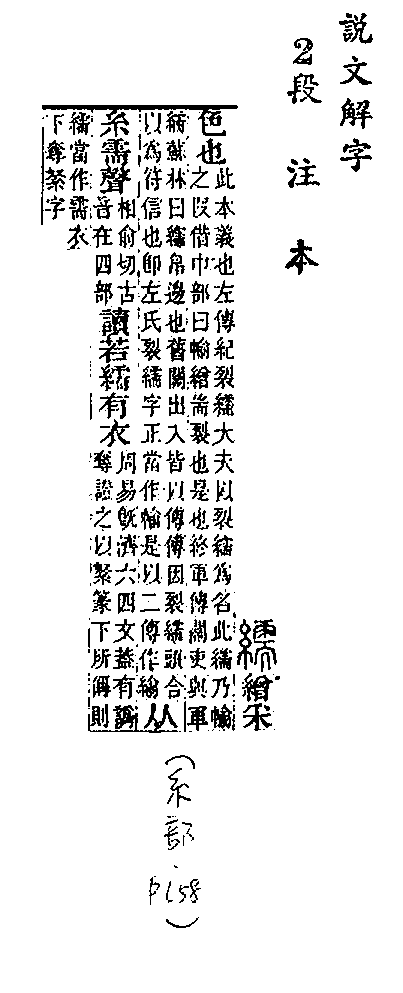 說文解字
2段 注 本
繻 繒采
色也
此本義也左傳紀裂繻大夫以裂繻爲名此繻乃㡏
之叚借巾部曰㡏繒耑裂也是也終軍傳關吏與軍
繻蘇林曰繻帛邊也舊關出入皆以傳傳因裂繻頭合
以爲符信也卽左氏裂繻字正當作㡏是以二傳作緰
从
糸需聲
相俞切古
音在四部
讀若繻有衣
周易旣濟六四文葢有譌
奪證之以絮篆下所偁則
繻當作需衣
下奪絮字
(糸部.
P158)